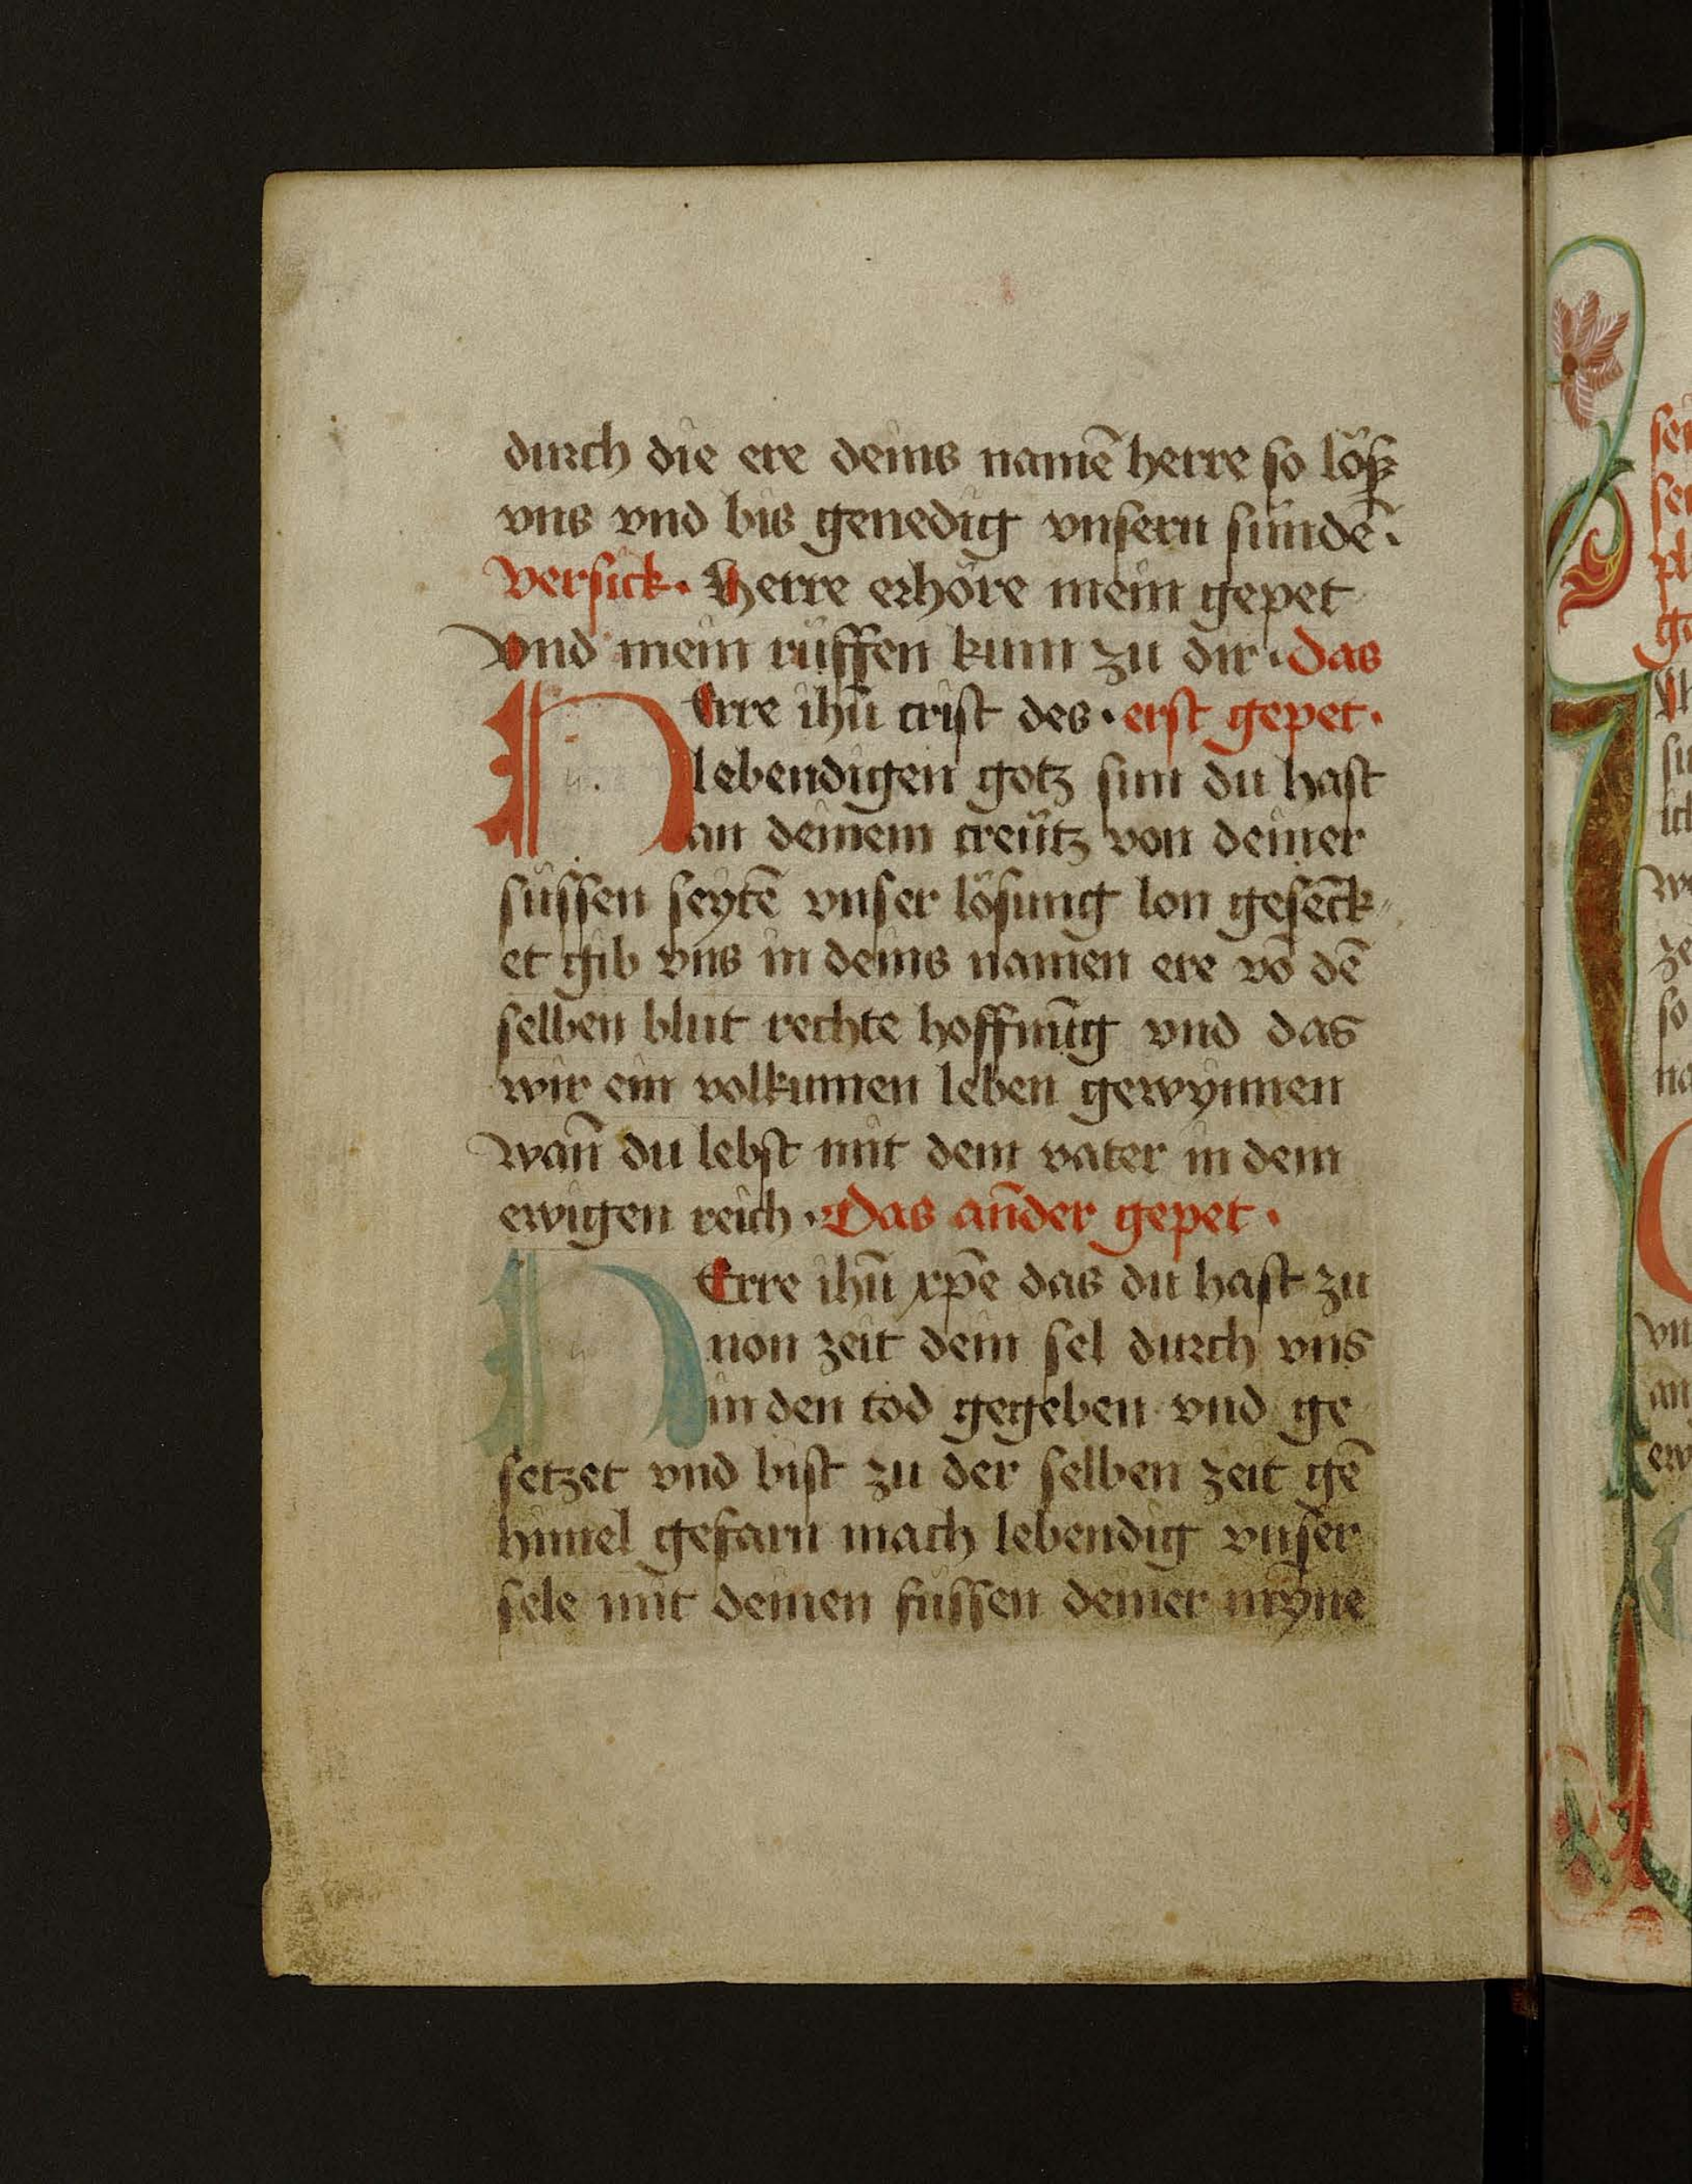 durch die ere deins namē herre so lösz
vns vnd bis genedig vnsern sündē.
Versick. Herre erhöre mein gepet
Vnd mein rüffen kum zu dir. das
HErre ihū crist des. erst gepet.
lebendigen gotz sun du hast
an deinem creütz von deiner
süssen seytē vnser lösung lon gesēck
et gib vns in deins namen ere vō dē
selben blut rechte hoffnūg vnd das
wir ein volkumen leben gewynnen
wañ du lebst mit dem vater in dem
ewigen reich. Das añder gepet.
HErre ihū xp̄e das du hast zu
non zeit dein sel durch vns
in den tod gegeben vnd ge
setzet vnd bist zu der selben zeit gē
himel gefarn mach lebendig vnser
sele mit deinen füssen deiner myne